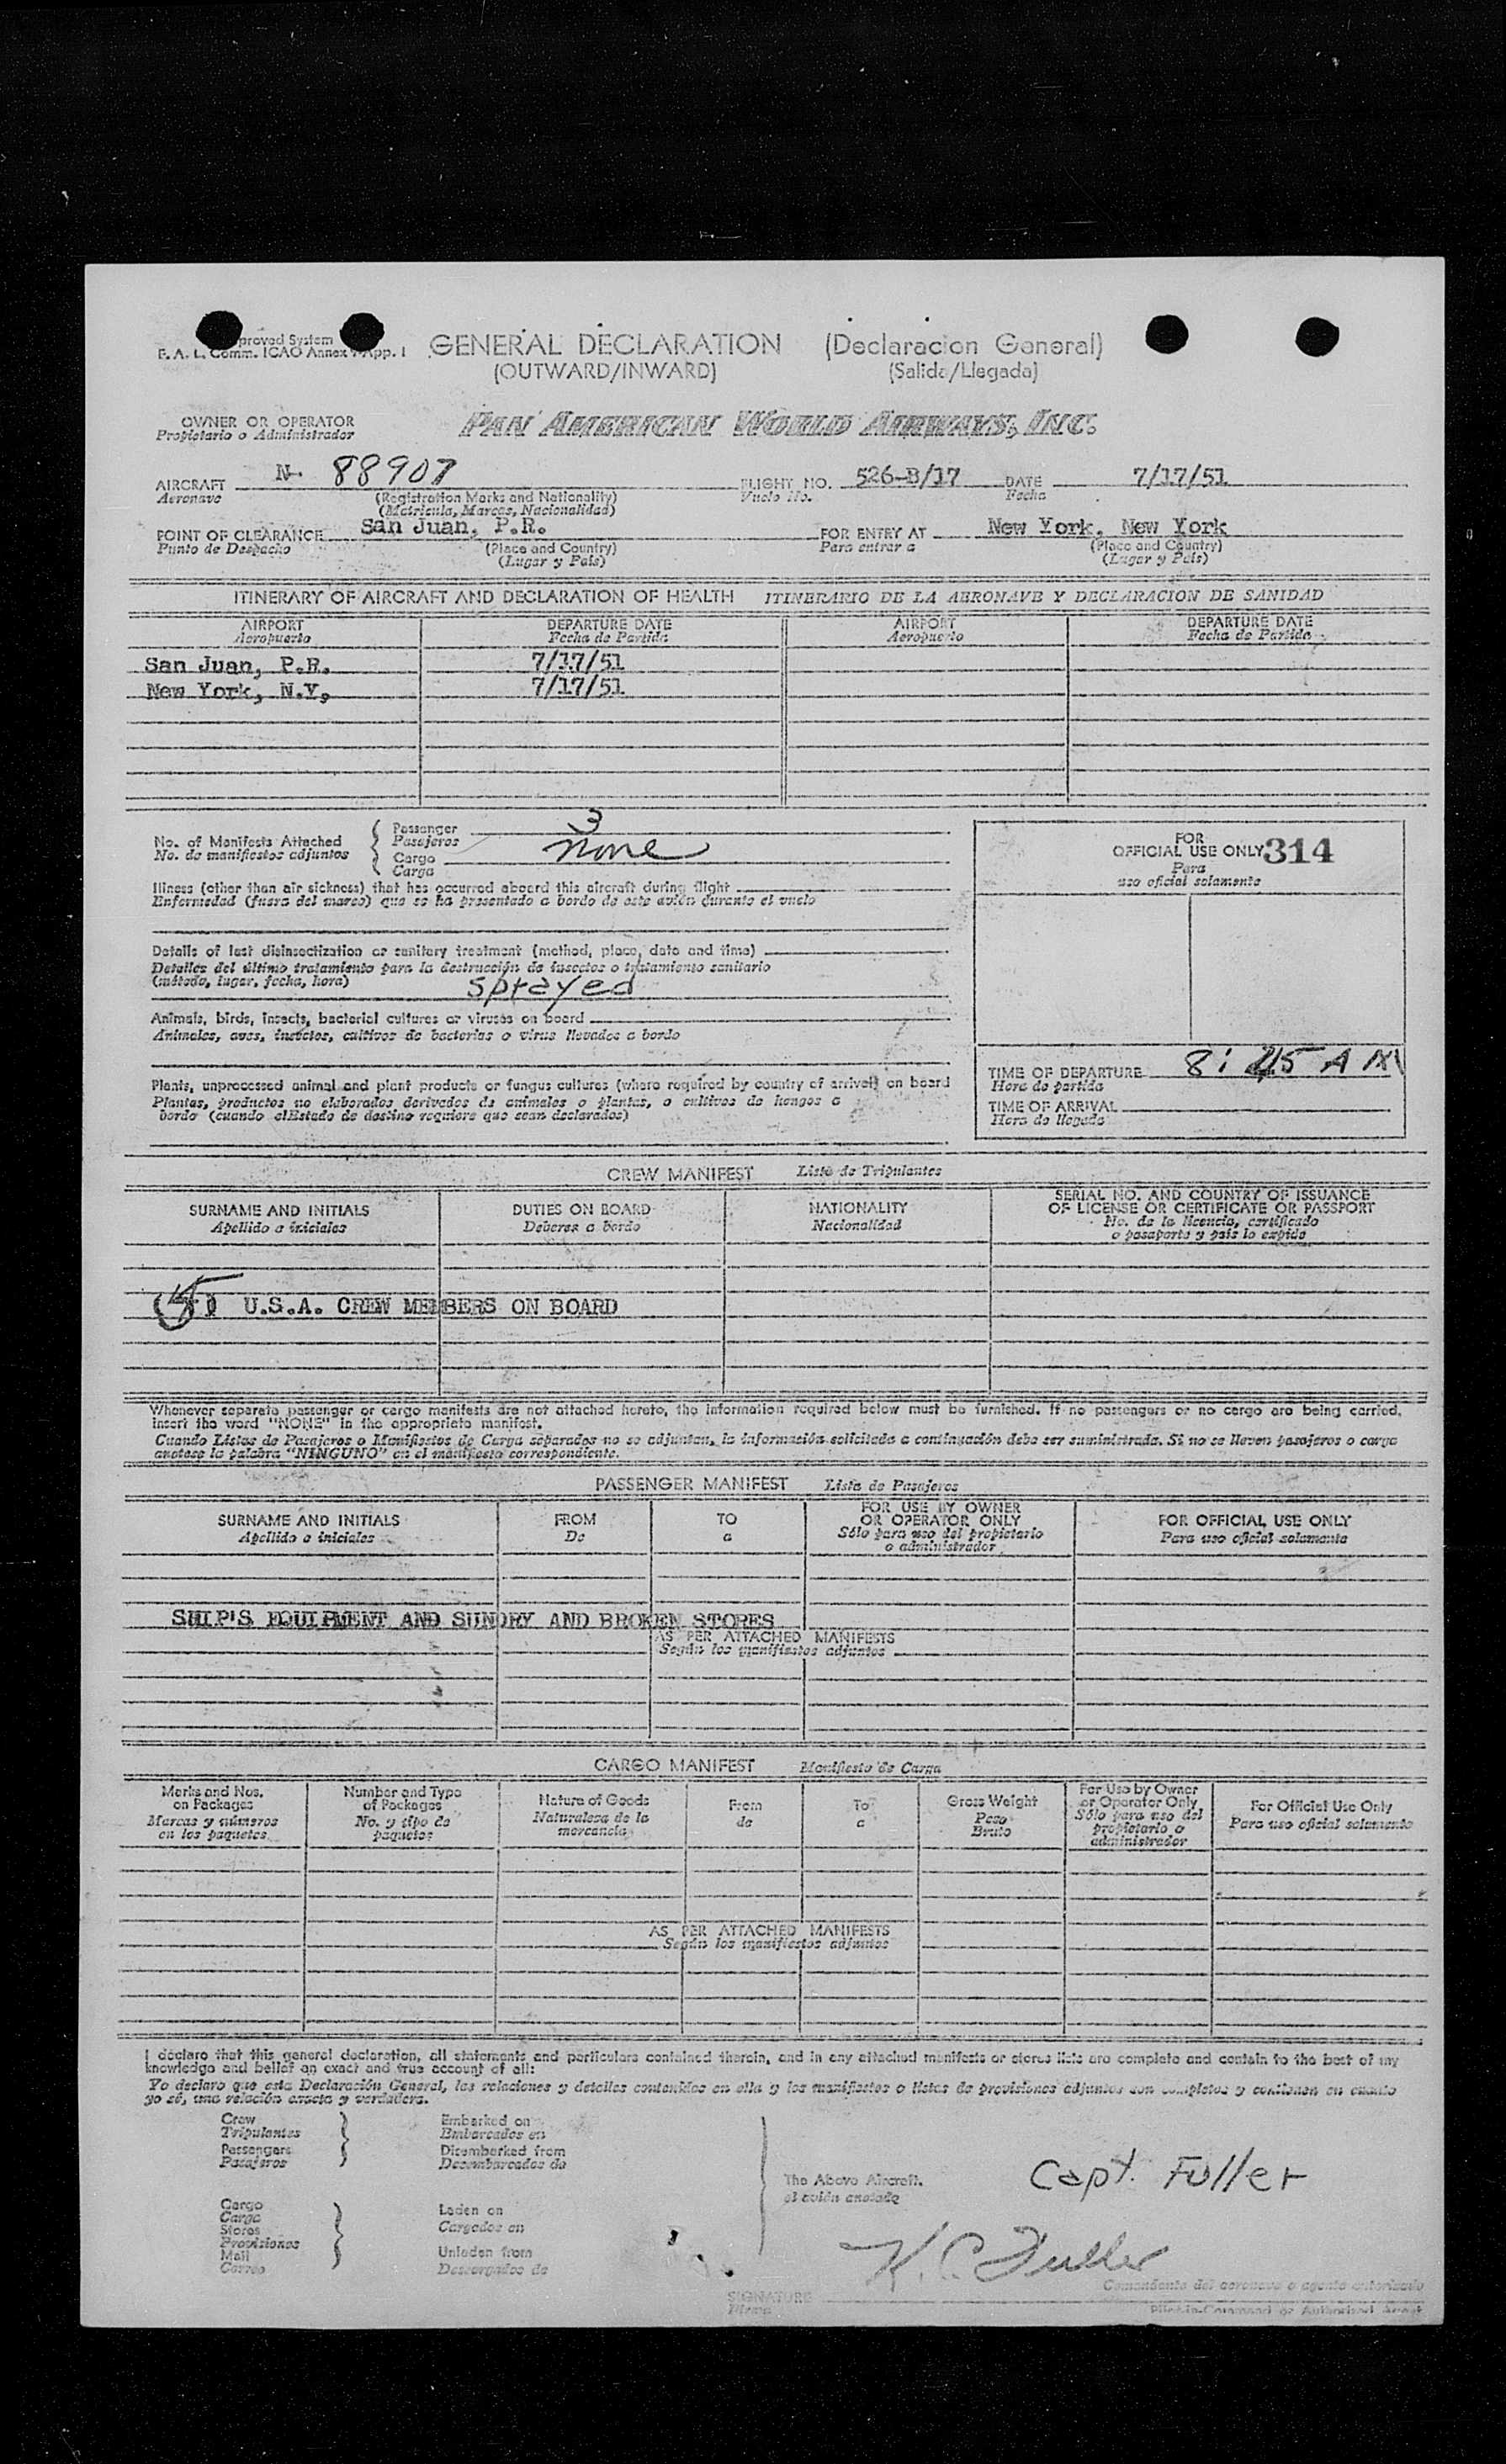 proved System
F. A. L. Comm. ICAO Annex 9 App. 1
GENERAL DECLARATION (Declaracion General)
(OUTWARD/INWARD) (Salida/Llegada)
OWNER OR OPERATOR PAN AMERICAN WORLD AIRWAYS, INC.
Propietario o Administrador
AIRCRAFT N- 88907 FLIGHT NO. 526-B/17 DATE 7/17/51
Aeronave (Registration Marks and Nationality) Vuelo No. Fecha
(Matricula, Marcas, Nacionalidad)
POINT OF CLEARANCE San Juan, P.R. FOR ENTRY AT New York, New York
Punto de Despacho (Place and Country) Para entrar a (Place and Country)
(Lugar y Pais) (Lugar y Pais)
ITINERARY OF AIRCRAFT AND DECLARATION OF HEALTH ITINERARIO DE LA AERONAVE Y DECLARACION DE SANIDAD
AIRPORT DEPARTURE DATE AIRPORT DEPARTURE DATE
Aeropuerto Fecha de Partida Aeropuerto Fecha de Partida
San Juan, P.R. 7/17/51
New York, N.Y, 7/17/51
No. of Manifests Attached Passenger 3
No. de manifiestos adjuntos Pasajeros
Cargo none
Carga
FOR
OFFICIAL USE ONLY 314
Para
uso oficial solamente
Illness (other than air sickness) that has occurred aboard this aircraft during flight
Enfermedad (fuera del mareo) que se ha presentado a bordo de este avión durante el vuelo
Details of last disinsectization or sanitary treatment (method, place, date and time)
Detalles del último tratamiento para la destrucción de insectos o tratamiento sanitario
(método, lugar, fecha, hora) sprayed
Animals, birds, insects, bacterial cultures or viruses on board
Animales, aves, insectos, cultivos de bacterias o virus llevados a bordo
Plants, unprocessed animal and plant products or fungus cultures (where required by country of arrival) on board
Plantas, productos no elaborados derivados de animales o plantas, o cultivos de hongos a
bordo (cuando elEstado de destino requiere que sean declarados)
TIME OF DEPARTURE 8:45 AM
Hora de partida
TIME OF ARRIVAL
Hora de llegada
CREW MANIFEST Lista de Tripulantes
SURNAME AND INITIALS DUTIES ON BOARD NATIONALITY SERIAL NO. AND COUNTRY OF ISSUANCE
OF LICENSE OR CERTIFICATE OR PASSPORT
Apellido e iniciales Deberes a bordo Nacionalidad No. de la licencia, certificado
o pasaporte y país lo expide
(5) U.S.A. CREW MEMBERS ON BOARD
Whenever separate passenger or cargo manifests are not attached hereto, the information required below must be furnished. If no passengers or no cargo are being carried,
insert the word "NONE" in the appropriate manifest.
Cuando Listas de Pasajeros o Manifiestos de Carga separados no se adjuntan, la información solicitada a continuación debe ser suministrada. Si no se lleven pasajeros o carga
anotese la palabra "NINGUNO" en el manifiesto correspondiente.
PASSENGER MANIFEST Lista de Pasajeros
SURNAME AND INITIALS FROM TO FOR USE BY OWNER
OR OPERATOR ONLY FOR OFFICIAL USE ONLY
Apellido e iniciales De a Sólo para uso del propietario
o administrador Para uso oficial solamente
SHIP'S EQUIPMENT AND SUNDRY AND BROKEN STORES
AS PER ATTACHED MANIFESTS
Según los manifiestos adjuntos
CARGO MANIFEST Manifiesto de Carga
Marks and Nos.
on Packages
Marcas y números
en los paquetes
Number and Type
of Packages
No. y tipo de
paquetes
Nature of Goods
Naturaleza de la
mercancia
From
de
To
a
Gross Weight
Peso
Bruto
For Use by Owner
or Operator Only
Sólo para uso del
propietario o
administrador
For Official Use Only
Para uso oficial solamente
AS PER ATTACHED MANIFESTS
Según los manifiestos adjuntos
I declare that this general declaration, all statements and particulars contained therein, and in any attached manifests or stores lists are complete and contain to the best of my
knowledge and belief an exact and true account of all:
Yo declaro que esta Declaración General, las relaciones y detalles contenidos en ella y los manifiestos o listas de provisiones adjuntos son completos y contienen en cuanto
yo sé, una relación exacta y verdadera.
Crew Embarked on
Tripulantes Embarcados en
Passengers Disembarked from
Pasajeros Desembarcados de
The Above Aircraft.
el avión anotado
Capt. Fuller
Cargo Laden on
Carga Cargados en
Stores
Provisiones
Mail Unladen from
Correo Descargados de
K.C. Fuller
Comandante del aeronave o agente autorizado
SIGNATURE
Firma
Pilot-in-Command or Authorized Agent